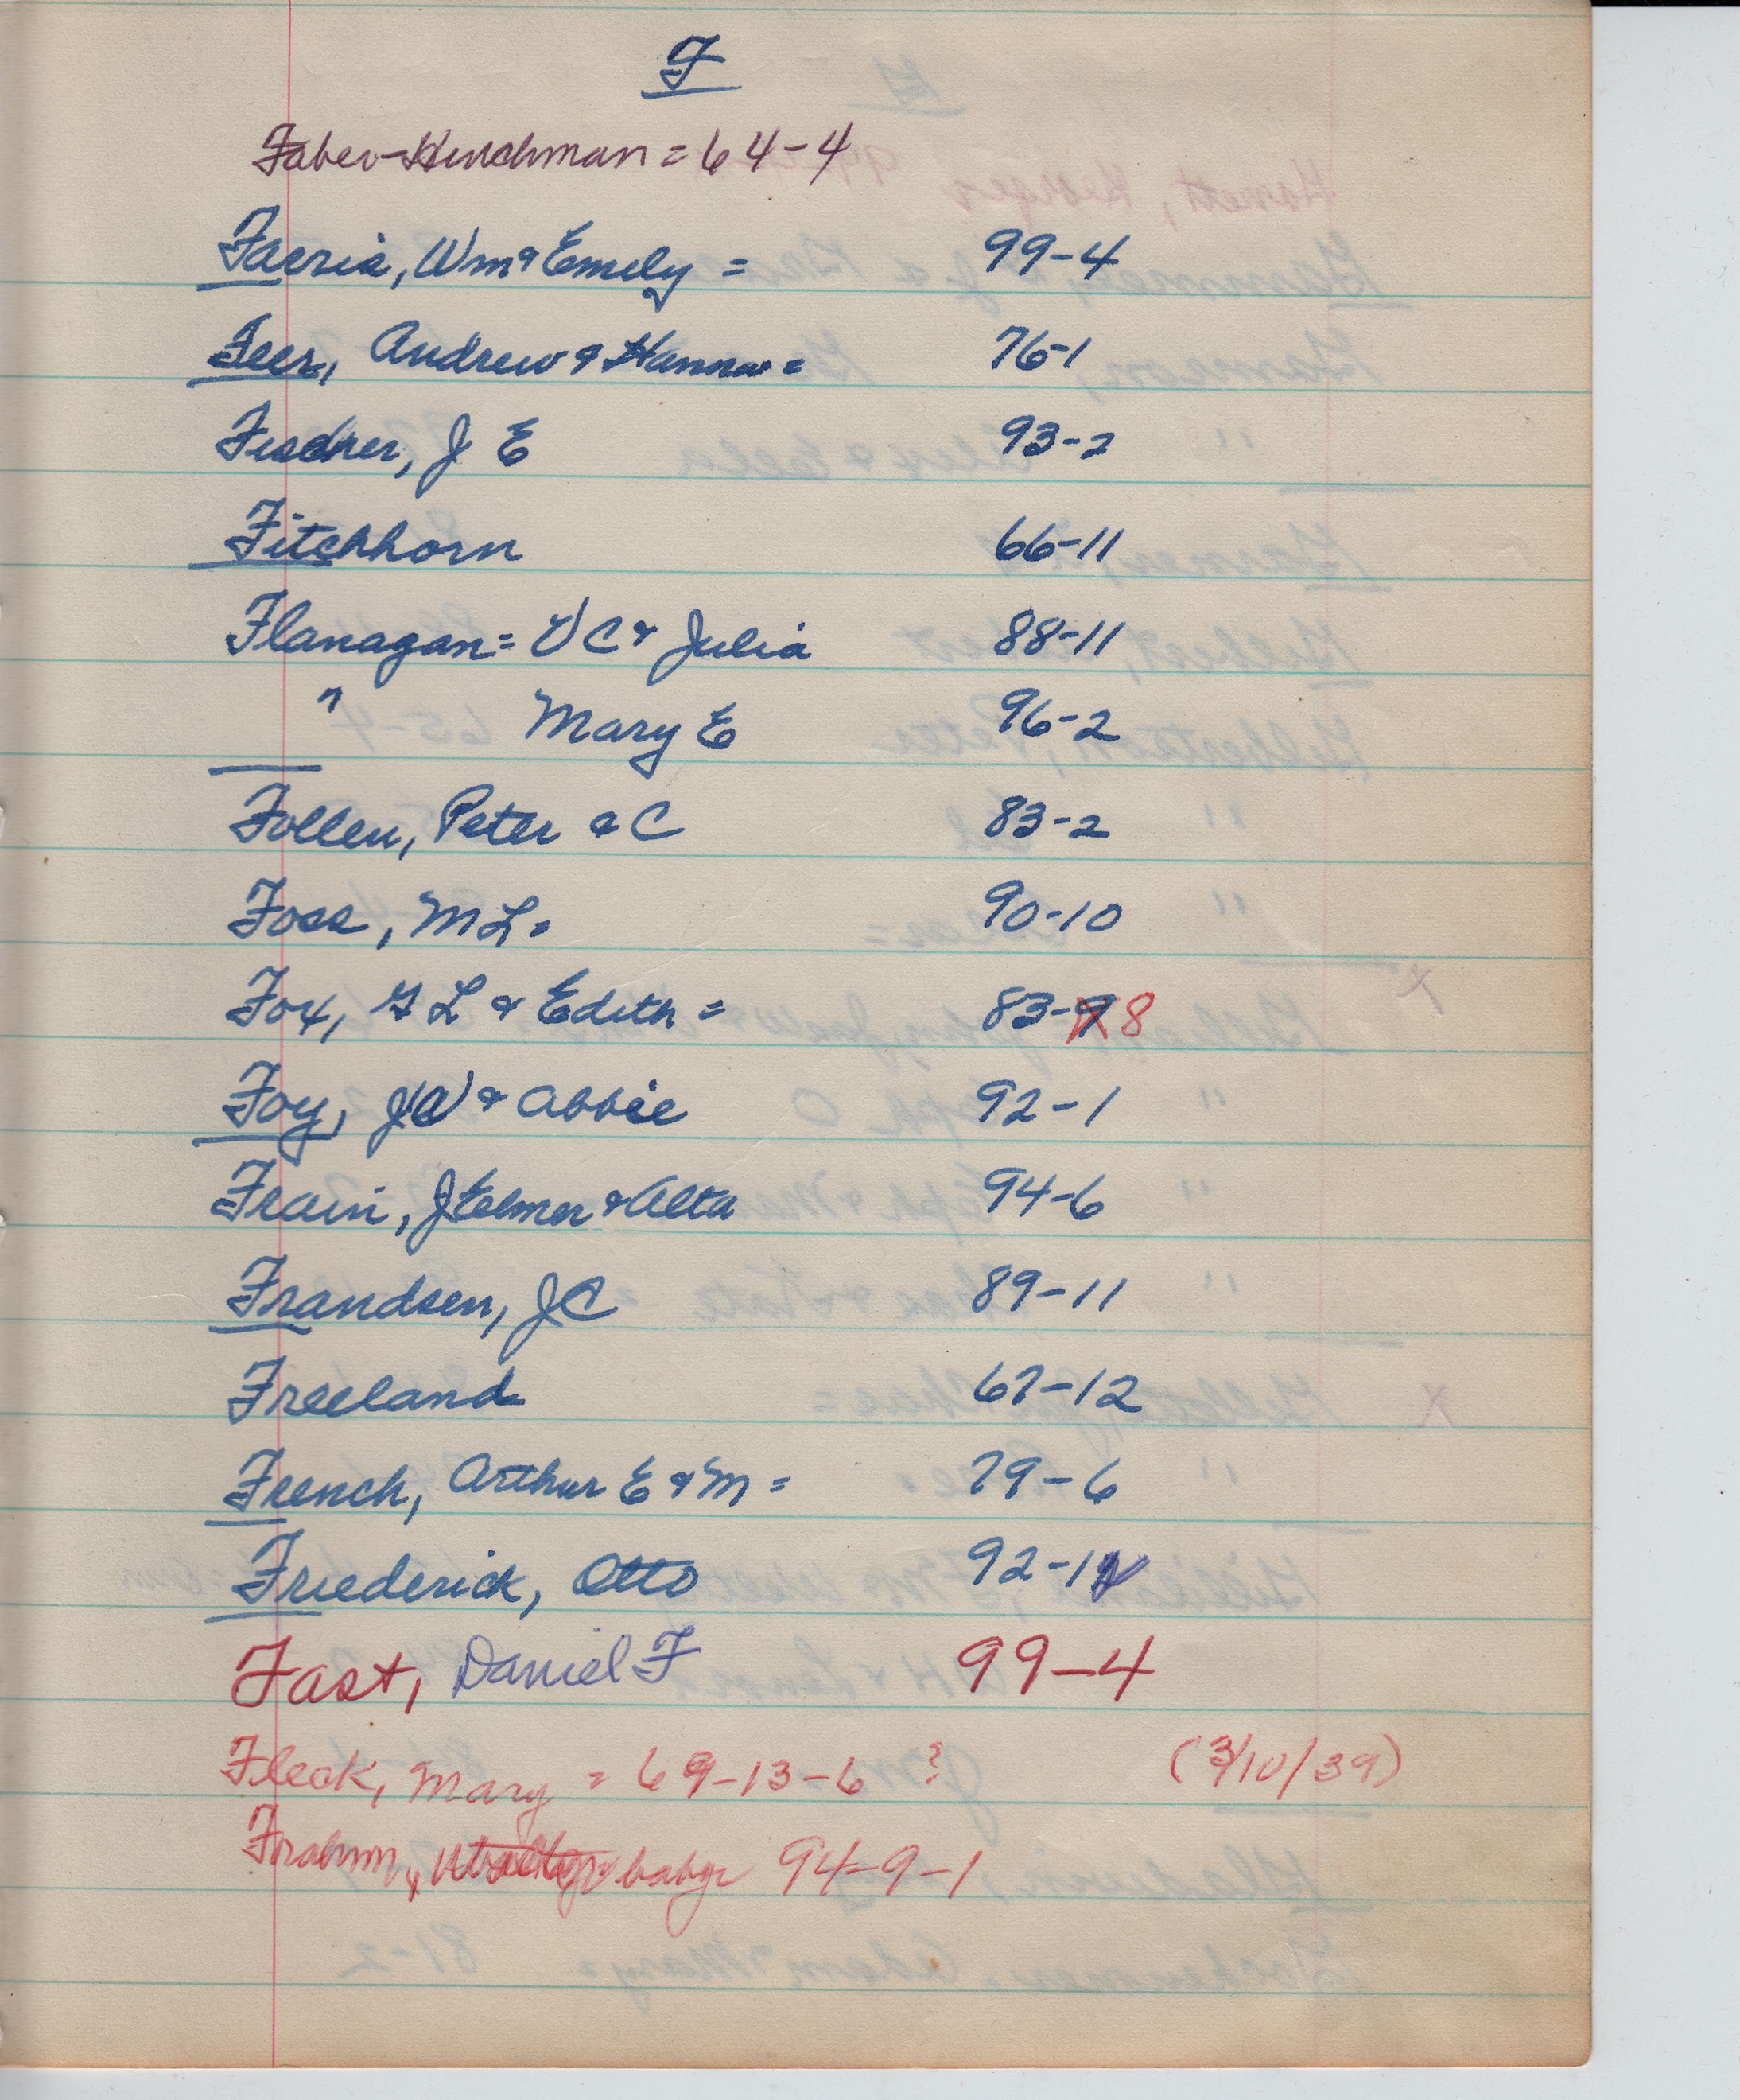 F
Faber-Hinchman = 64-4
Faeria, Wm & Emely = 99-4
Feer, Andrew & Hanna = 76-1
Fischer, J E 93-2
Fitchhorn 66-11
Flanagan = V C & Julia 88-11
" Mary E 96-2
Follen, Peter & C 83-2
Foss, M L = 90-10
Fox, G L & Edith = 83-9 8
Foy, J W & Abbie 92-1
Frain, J Elmer & Alta 94-6
Frandsen, J C 89-11
Freeland 67-12
French, Arthur E & M = 79-6
Friederick, Otto 92-11
Fast, Daniel F 99-4
Fleck, Mary = 69-13-6 ? (3/10/39)
Frahm, baby 94-9-1